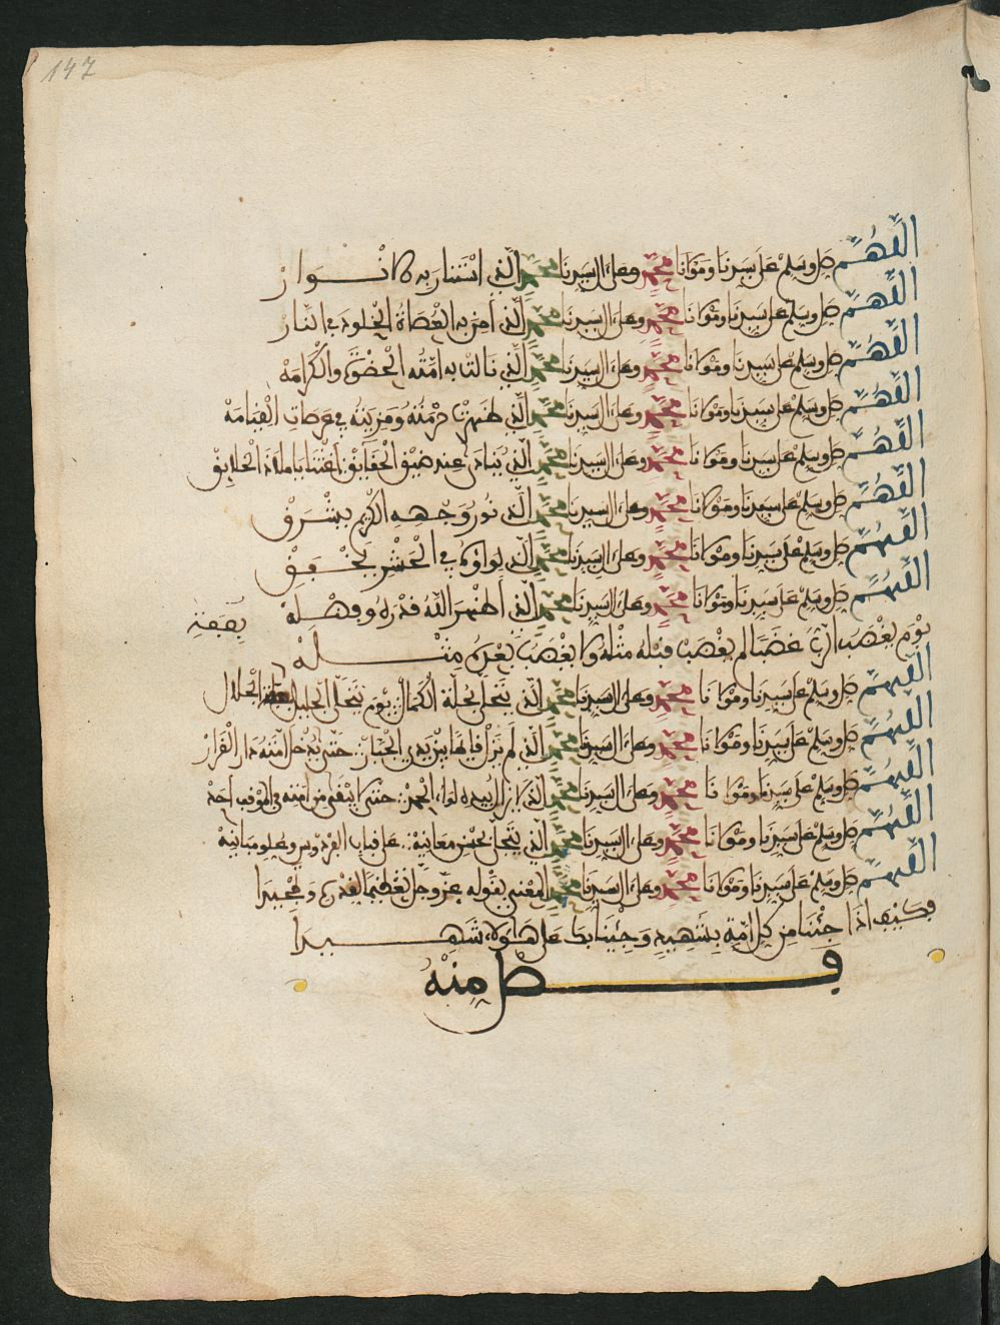 147
اللهم صل وسلم على سيدنا ومولانا محمد وعلى ءال سيدنا محمد الذي استنار به الانوار
اللهم صل وسلم على سيدنا ومولانا محمد وعلى ءال سيدنا محمد الذي امن به العصاة الخلود في النار
اللهم صل وسلم على سيدنا ومولانا محمد وعلى ءال سيدنا محمد الذي نالت به امته الحضوة والكرامة
اللهم صل وسلم على سيدنا ومولانا محمد وعلى ءال سيدنا محمد الذي ظهرت حرمته ومزيته في عرصات القيامة
اللهم صل وسلم على سيدنا ومولانا محمد وعلى ءال سيدنا محمد الذي ينادى عند ضيق الحقايق اغثنا يا ملاذ الخلايق
اللهم صل وسلم على سيدنا ومولانا محمد وعلى ءال سيدنا محمد الذي نور وجهه الكريم يشرق
اللهم صل وسلم على سيدنا ومولانا محمد وعلى ءال سيدنا محمد الذي لواؤه في الحشر يخفق
اللهم صل وسلم على سيدنا ومولانا محمد وعلى ءال سيدنا محمد الذي اظهر الله قدره وفضله
يوم يغضب الرب غضبا لم يغضب قبله مثله ولا يغضب بعده مثله
اللهم صل وسلم على سيدنا ومولانا محمد وعلى ءال سيدنا محمد الذي يتحلى بحلة الكمال يوم يتجلى الجليل الجلال
اللهم صل وسلم على سيدنا ومولانا محمد وعلى ءال سيدنا محمد الذي لم يزل قايما بين يدي الجبار حتى يدخل امته دار القرار
اللهم صل وسلم على سيدنا ومولانا محمد وعلى ءال سيدنا محمد الذي بيده لواء الحمد حتى لا يبقى من امته في الموقف احد
اللهم صل وسلم على سيدنا ومولانا محمد وعلى ءال سيدنا محمد الذي يتجلى بحسن معانيه على قباب الفردوس وعلو مبانيه
اللهم صل وسلم على سيدنا ومولانا محمد وعلى ءال سيدنا محمد المعني بقوله عز وجل تعظيما لقدره وتمجيدا
فكيف اذا جئنا من كل امة بشهيد وجئنا بك على هاؤلاء شهيدا
فصل منه